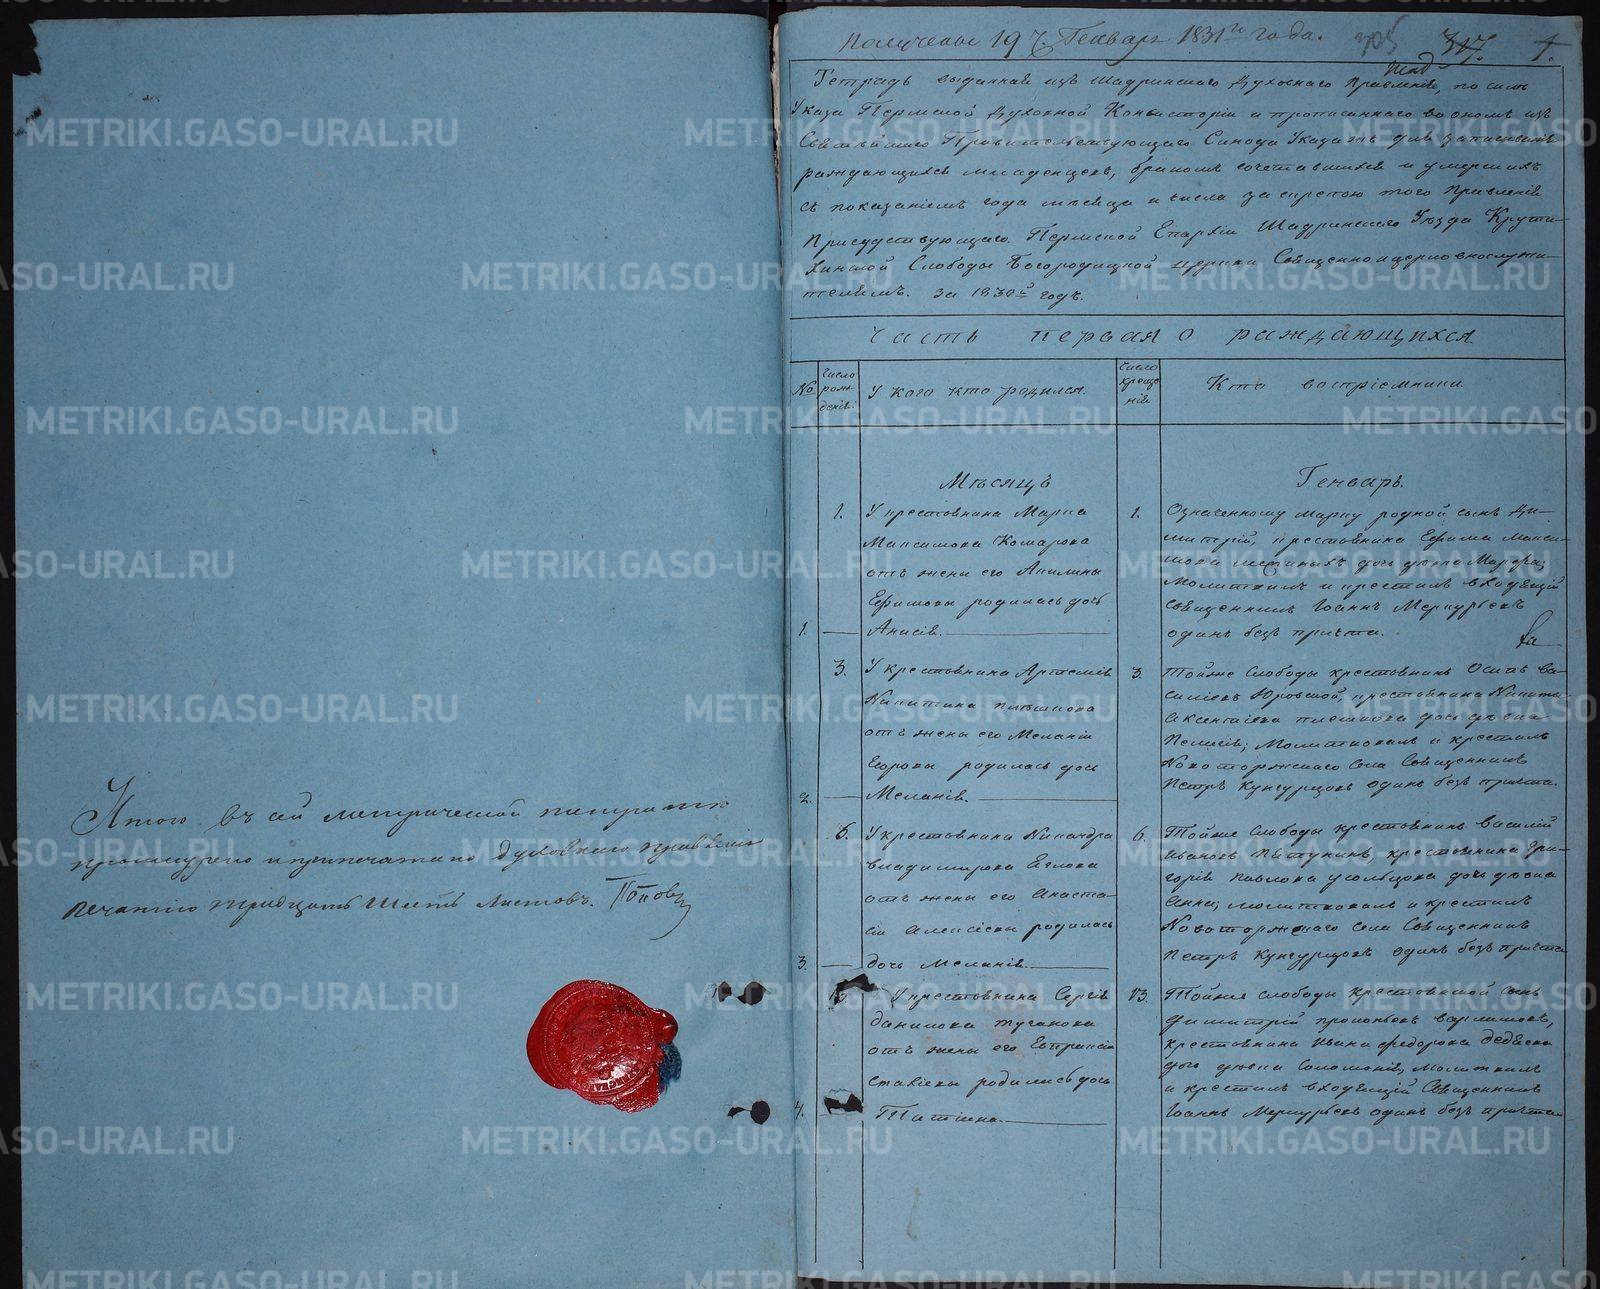 Итого въ сей метрической тетратке
прошнурено и припечатано духовнаго правления
печатию тридцать шесть листовъ. Поповъ
Получены 19 ч. Генваря 1831го года. 305 307. 1.
Тетрадь выданная изъ Шадринского Духовнаго Правленiя, по силе
Указа Пермской Духовной Консисторiи и прописаннаго во ономъ изъ
Святейшаго Правительствующаго Синода Указа для записыванiя
раждающихся младенцевъ, бракомъ сочетавшихся и умершихъ
съ показанiемъ года месяца и числа за скрепою того Правленiя
Присудствующаго. Пермской Епархiи Шадринскаго Уезда Крути-
хинской Слободы Богородицкой церкви Священноицерковнослужи-
телямъ. За 1830й годъ.
Часть первая о раждающихся
№ Число рожденiя. У кого кто родился. Число крещенiя Кто воспрiемники.
Месяцъ Генварь.
1. У крестьянина Марка
Максимова Комарова
отъ жены его Акилины
Ефимовы родилась дочь
1. Анисiя.
1. Означенному Марку родной сынъ Ди-
митрiй, крестьянина Ефима Макси-
мова дочь девка Марфа;
Молитвилъ и крестилъ входящiй
Священникъ Iоаннъ Меркурьевъ
одинъ безъ причта.
3. У крестьянина Артемiя
Никитина Плешкова
отъ жены его Меланiи
Егоровы родилась дочь
2. Меланiя.
3. Тойже Слободы крестьянинъ Осипъ Ва-
силiевъ Юровской, крестьянина Никиты
Аксентиева Плешкова дочь девка
Пелагiя; Молитвовалъ и крестилъ
Новоторжскаго села Священникъ
Петръ Кунгурцовъ одинъ безъ причта.
6. У крестьянина Никандра
Владимирова
отъ жены его Анаста-
сiи Алексiевы родилась
3. дочь Меланiя.
6. Тойже Слободы крестьянинъ Василiй
Ивановъ Пятунинъ, крестьянина Гри-
горiя Павлова Усольцова дочь девка
Анна; Молитвовалъ и крестилъ
Новоторжскаго Села Священникъ
Петръ Кунгурцовъ одинъ безъ причта
У крестьянина Сергiя
Данилова Туганова
отъ жены его Евпраксiи
Савiевы родилась дочь
4. Татiана.
13. Тойже слободы крестьянской сынъ
Димитрiй Прокопьевъ
крестьянина Ивана Федорова
дочь девка Соломонiя, Молитвилъ
и крестилъ входящiй Священникъ
Iоаннъ Меркурьевъ одинъ безъ причта
METRIKI.GASO-URAL.RU